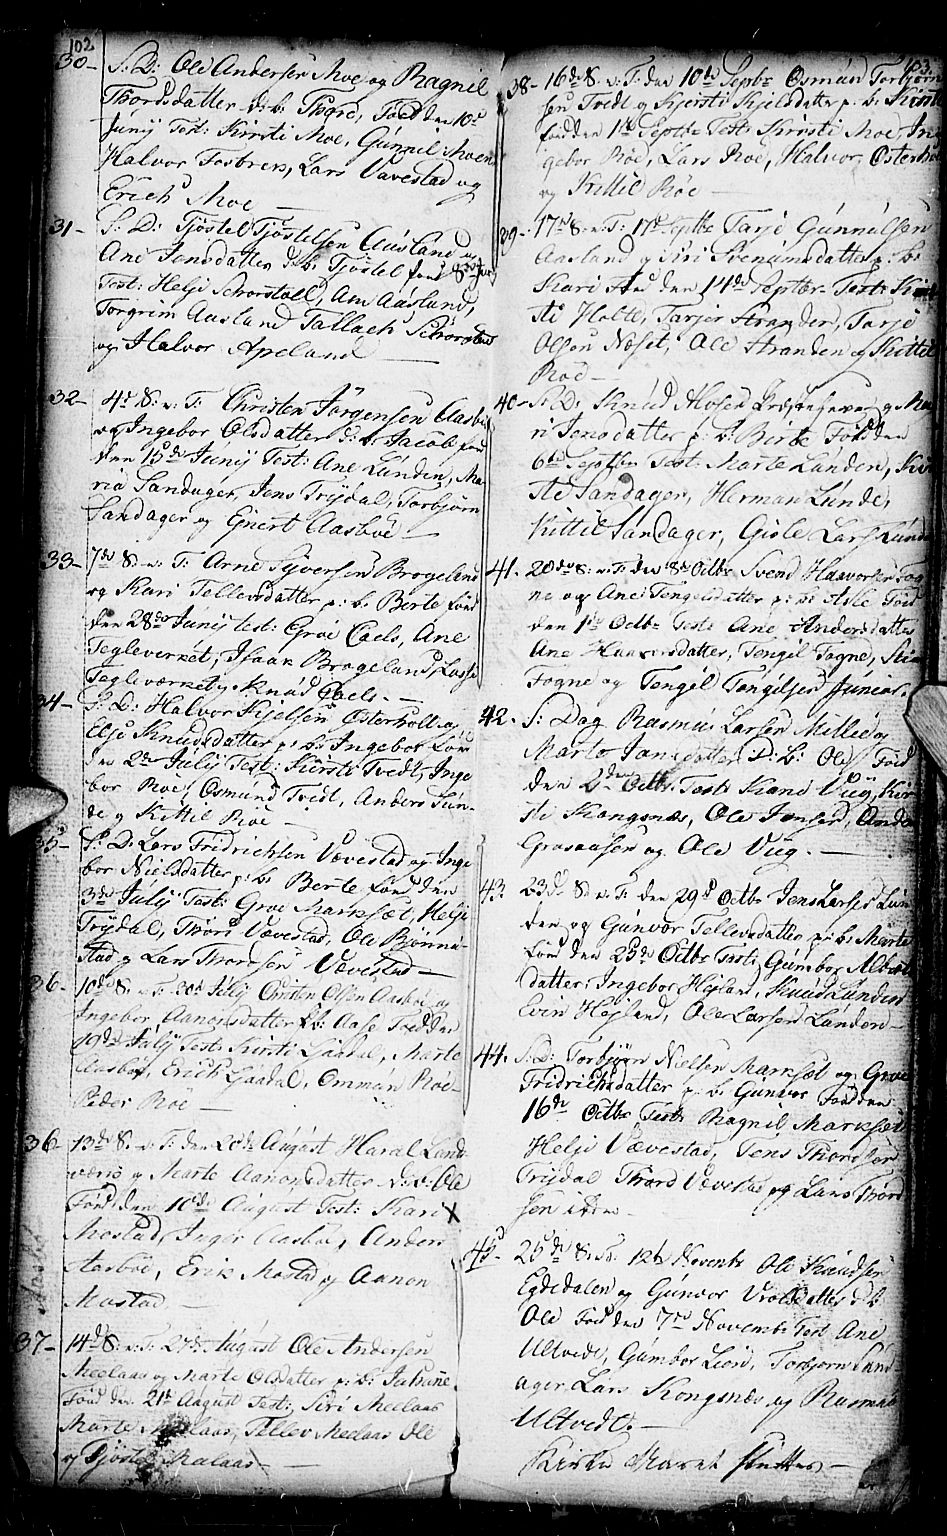 102
30- S: D: Ole Andersen Moe og Ragnil
Thordsdatter D: b: Thore, Fød den 10de
Juny Test: Kirsti Moe, Gunnil Moen
Halvor Fosbren, Lars Vævestad og
Erich Moe —
31- S: D: Tjøstel Tjøstelsen Aasland og
Ane Jensdatter D: b: Tjøstel fød
Test: Helje Schorstøll, Ane Aasland,
Torgrim Aasland Tallach Schorstøl
og Halvor Apeland —
32- 4de S: e: T: Christen Jørgensen Aasbøe
og Ingebor Olsdatter d: b: Jacob fød
den 15de Juny Test: Ane Lunden, Ma
ria Sandager, Jens Trydal, Torbjørn
Sandager og Ejvert Aasbøe —
33- 7de S: e: T: Arne Syversen Brogeland
og Kari Tellevsdatter p: b: Berte født
den 28de Juny test: Groe Caels, Ane
Tegleverket, Isaak Brogeland, Lasse
Tegleværket og Knud Caels. —
34- S: D: Halvor Kjelsen Østerholt og
Elje Knudsdatter p: b: Ingebor født
den 2de July Test: Kirsti Tvedt, Inge
bor Roe, Osmund Tvedt, Anders Lun-
de og Kittil Roe —
35- S: D: Lars Fridrichsen Vævestad og Inge
bor Nielsdatter p: b: Berte født den
3de July Test: Groe Marksæt, Helje
Trydal, Thore Vævestad, Ole Bjønne-
stad og Lars Thordsen Vævestad —
36- 10de S: e: T: 30de July Christen Olsen Aasbøe og
Ingebor Aanonsdatter D: b: Aase Fød den
19de July Test: Kirsti Ljaadal, Marte
Aasbøe, Erich Ljaadal, Ommun Roe-
Peder Roe —
36 13de S: e: T: den 20de August Haral Land-
værs og Marte Aanonsdatter D: b: Ole
Fød den 10de August Test: Kari X
Mostad, Inger Aasbøe, Anders
Aasbøe, Erik Mostad og Aanon
Mostad —
37- 14de S: e: T: 27de August Ole Andersen
Meelaas og Marte Olsdatter p: b:
Fød den 21de August Test: Siri Meelaas
Marte Meelaas, Tellev Meelaas Ole
og Tjøstel Meelaas —
103
38- 16de S: e: T: den 10de Septbr Osmun Torbjørn
sen Tvedt og Kjersti Kjelsdatter p: b: Kirsti
fød den 1de Septbr Test: Kirsti Moe, In
gebor Roe, Lars Roe, Halvor Østerholt
og Kittil Roe —
39- 17de S: e: T: 17de Septbr Tarje Gunnulsen
Aasland og Siri Svenumsdatter p: b:
Kari Fød den 14de Septbr Test: Kir
sti Holte, Tarjer Stranden, Tarje
Olsen Næset, Ole Stranden og Kittil
Roe —
40- S: D: Knud Alosen og Ma
ri Jensdatter p: b: Birte Fød den
6te Septbr Test: Marte Lunden, Kir
sti Sandager, Herman Lunde,
Kittil Sandager, Gisle Lars Lunde
41. 20de S: e: T: den 8de Octbr Svend Haavorsen Fog
ne og Ane Tengelsdatter p: b: Asle Fød
den 1de Octbr Test: Ane Andersdatter
Ane Haavorsdatter, Tengil Fogne,
Fogne og Tengil Tengilsen Junior.
42- S: Dag Rasmus Larsen Mellie og
Marte Jansdatter D: b: Ole Fød
den 2den Octbr Test: Karie Vüg, Kir
sti Kongsnæs, Ole Jensen, Anders
Graaausen og Ole Vüg. —
43. 23de S: e: T: den 29de Octbr Jens Larsen Lun
den og Gunvor Tellevsdatter p: b: Marte
Fød den 25de Octbr Test: Gumbor Alber
datter, Ingebor Hejland, Knud Lunden
Evin Hejland, Ole Larsen Lunden —
44. S: D: Torbjørn Nielsen Marksæt og Groe
Fridrichsdatter p: b: Gunvor Fød den
16de Octbr Test: Ragnil Marksæt
Helje Vævestad, Jens Thordsen
Trydal Thord Vævestad og Lars Thord
sen ibdm —
45 25de S: e: T: 12te Novembr Ole Knudsen
Egdedalen og Gunvor Violsdatter d: b
Ole Fød den 7de Novembr Test Ane
Ultvedt, Gumbor Lien, Torbjørn Sand-
ager Lars Kongsnæs og Rasmus
Ultvedt. —
Kirke Aaret sluttes —